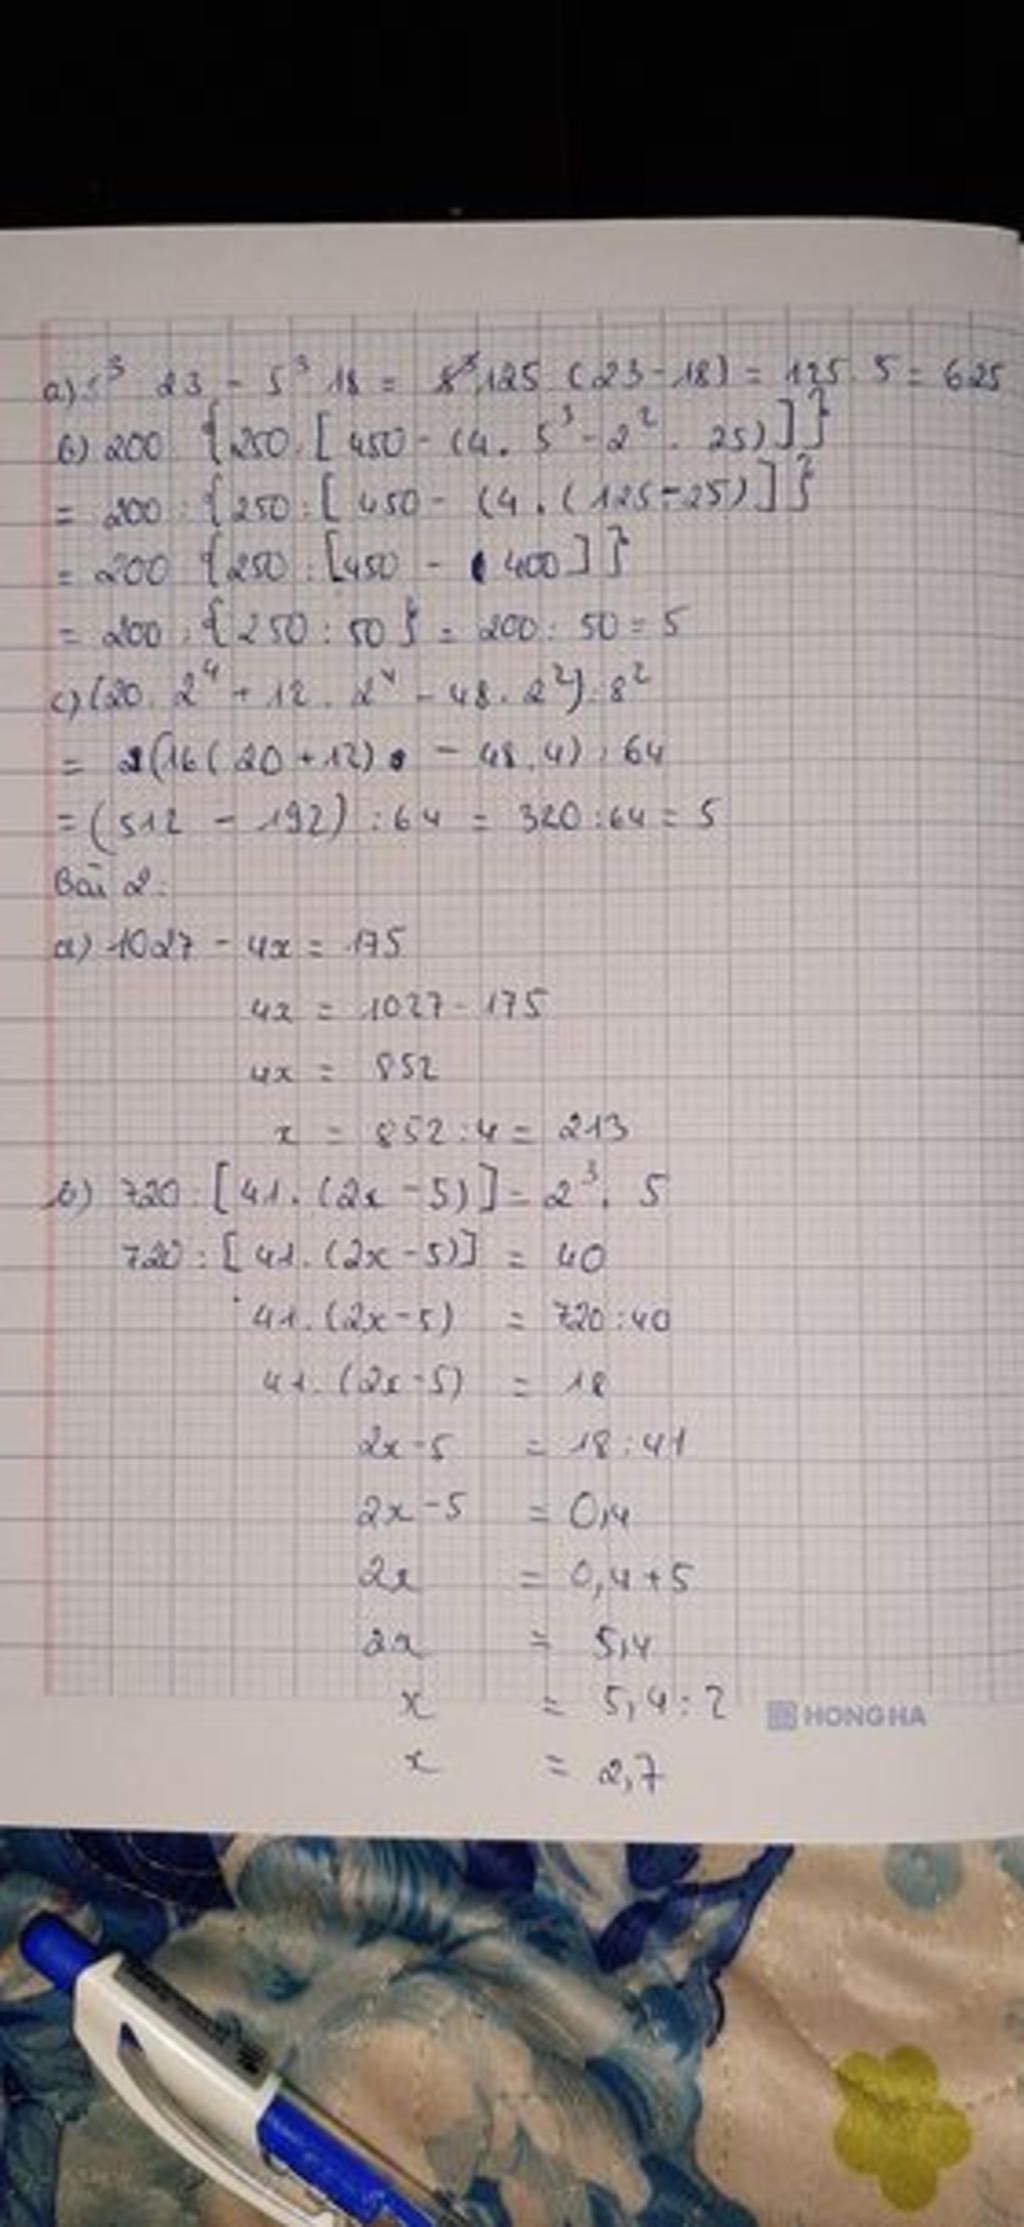 a) 5³ 23 - 5³ 18 = 125 (23-18) = 125. 5 = 625
b) 200 : {250 : [450 - (4. 5³ - 2². 25)]}
= 200 : {250 : [450 - (4. (125-25)]}
= 200 {250 : [450 - 400]}
= 200 : {250 : 50} = 200 : 50 = 5
c) (20. 2⁴ + 12. 2⁴ - 48. 2²) : 8²
= (16(20 + 12) - 48.4) : 64
= (512 - 192) : 64 = 320 : 64 = 5
Bài 2:
a) 1027 - 4x = 175
4x = 1027 - 175
4x = 852
x = 852 : 4 = 213
b) 720 : [41. (2x - 5)] = 2³. 5
720 : [41. (2x - 5)] = 40
41. (2x - 5) = 720 : 40
41. (2x - 5) = 18
2x - 5 = 18 : 41
2x - 5 = 0,4
2x = 0,4 + 5
2x = 5,4
x = 5,4 : 2
HONG HA
x = 2,7